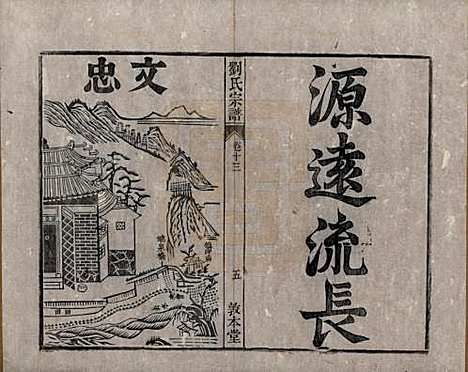 源遠流長
劉氏宗譜
卷十三
五
敦本堂
文忠